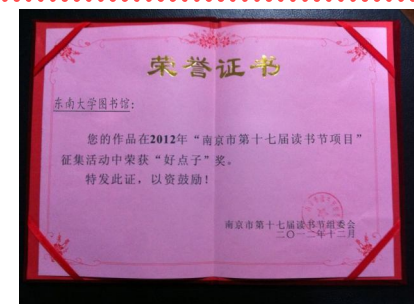 荣誉证书
东南大学图书馆：
您的作品在2012年“南京市第十七届读书节项目”
征集活动中荣获“好点子”奖。
特发此证，以资鼓励！
南京市第十七届读书节组委会
二〇一二年十二月